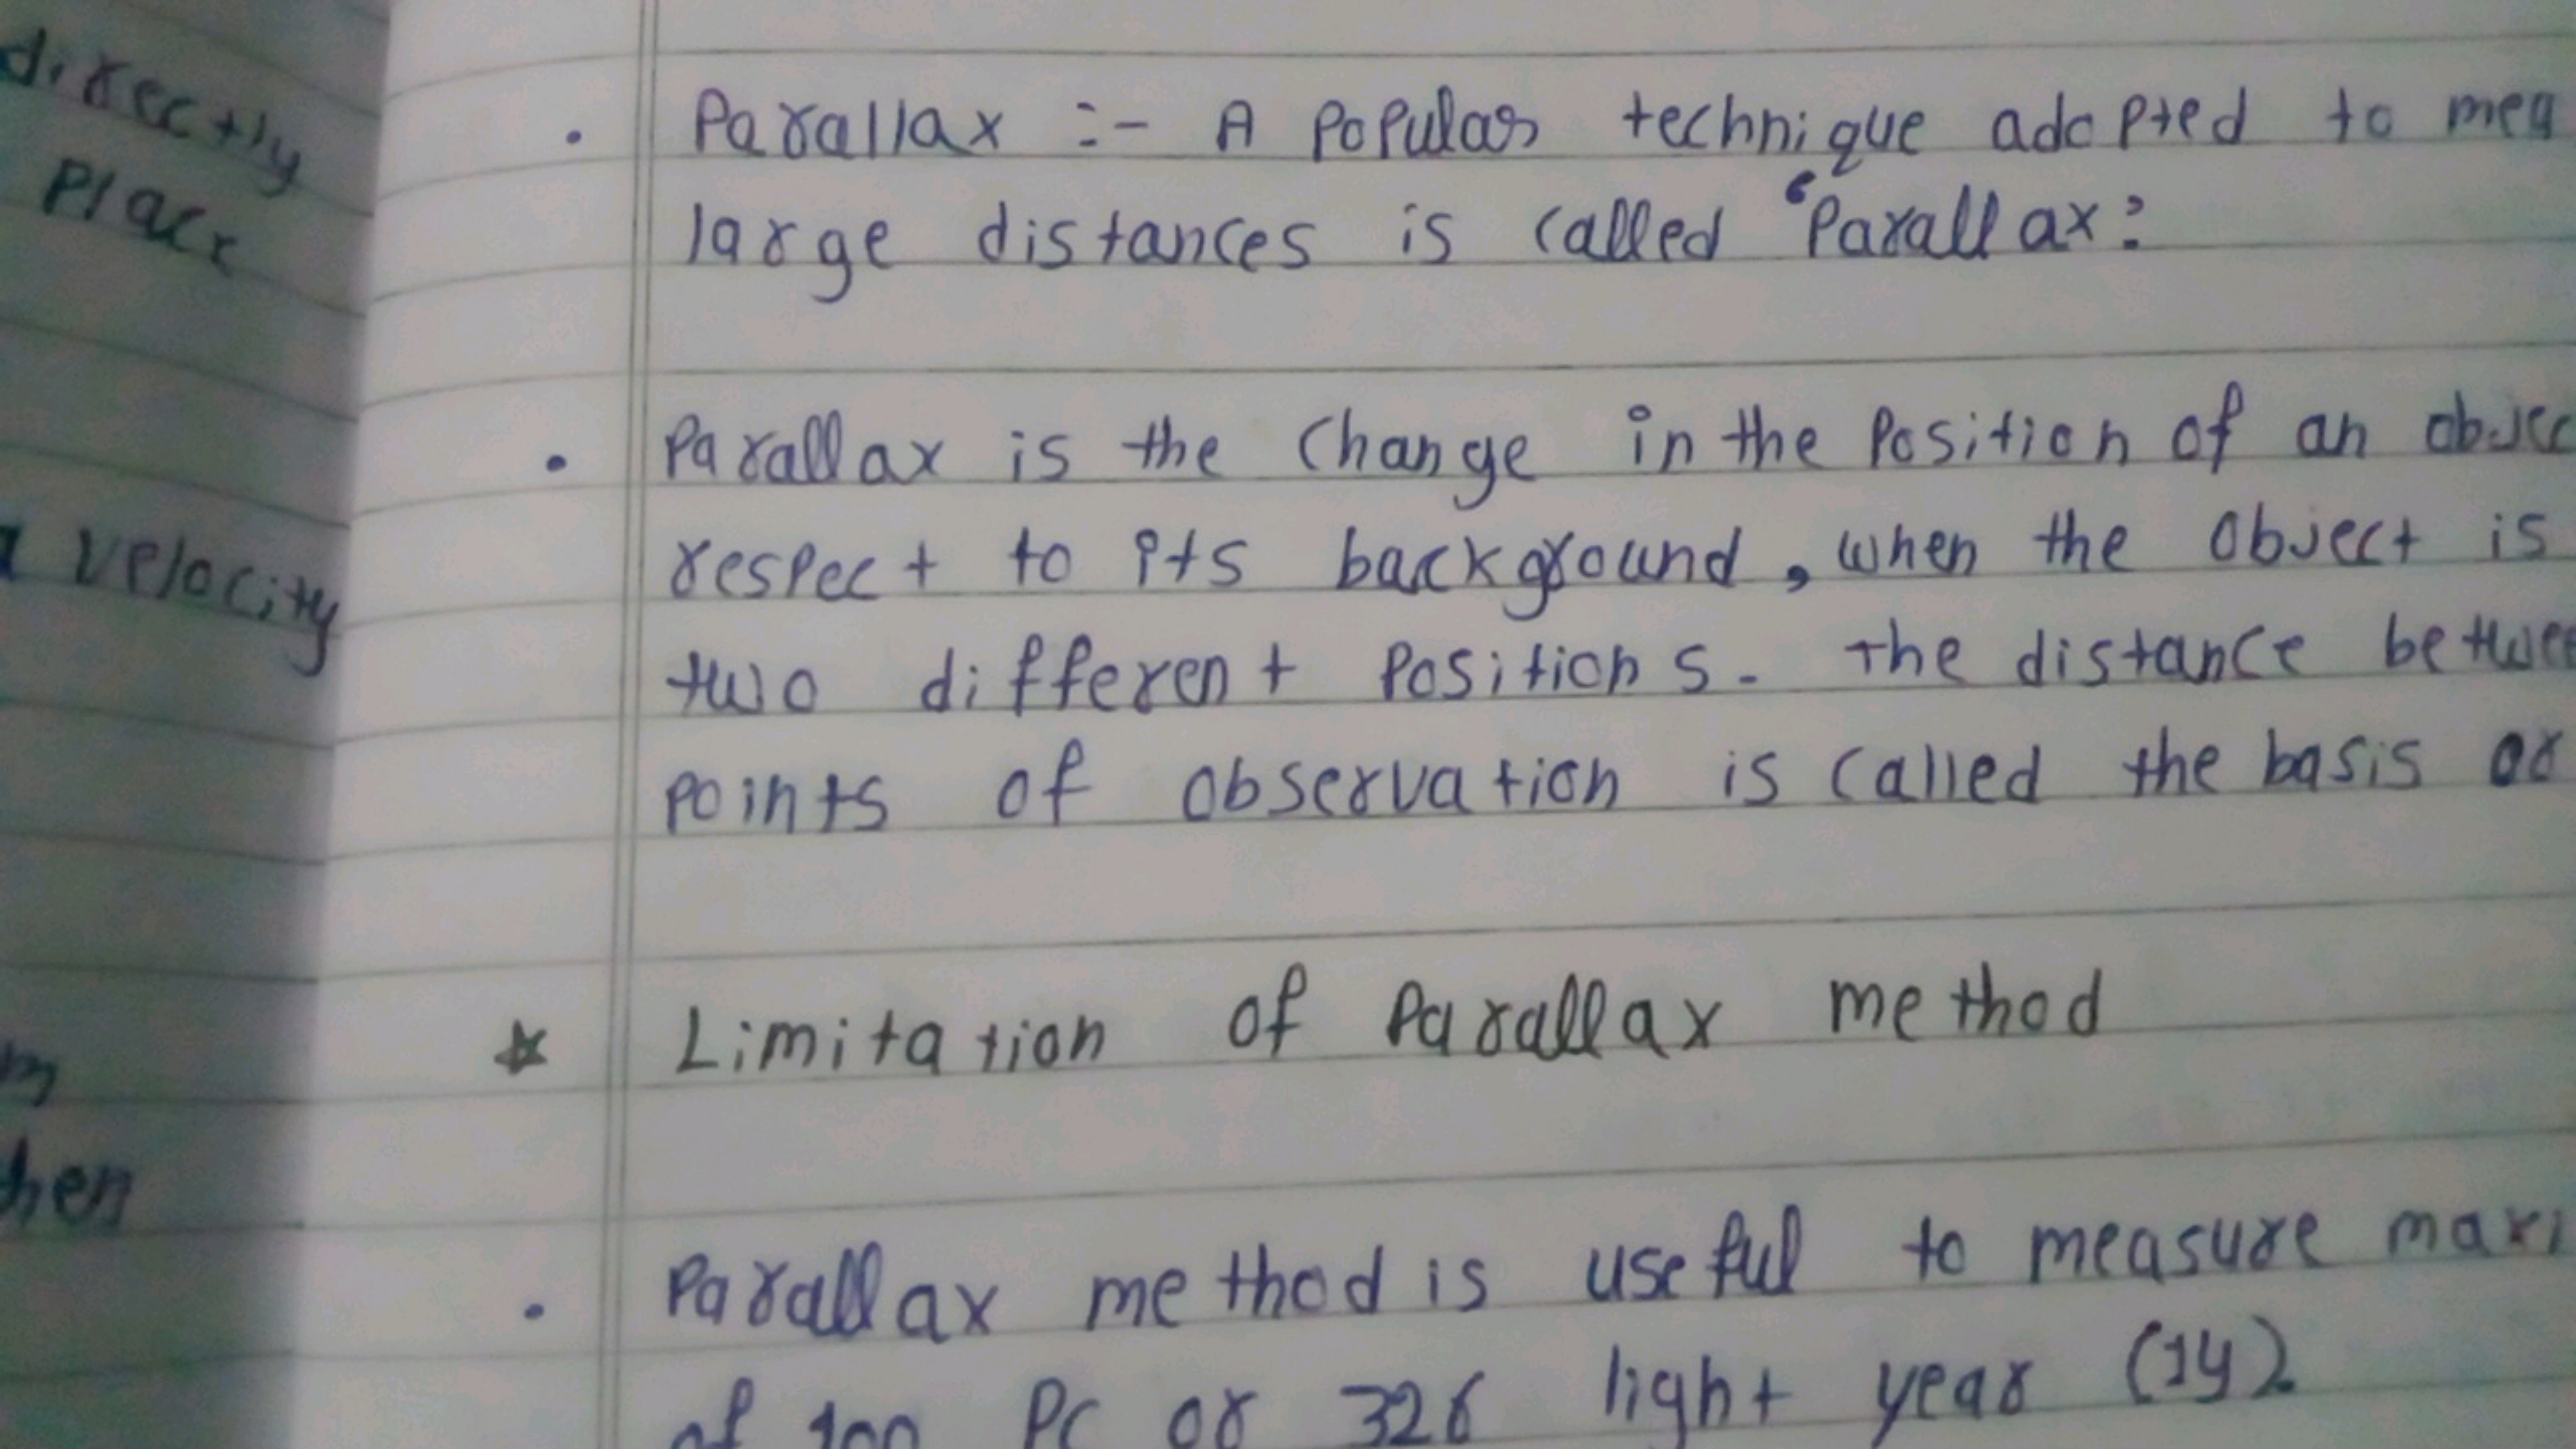 directly
place
velocity
hen
• Parallax :- A Popular technique adopted to mea
large distances is called "Parallax:
• Parallax is the change in the Position of an objec
respect to its background, when the object is
two different Positions. The distance betwee
points of observation is called the basis or
☆ Limitation of Parallax method
• Parallax method is useful to measure maxi
of 100 Pc or 326 light year (ly)